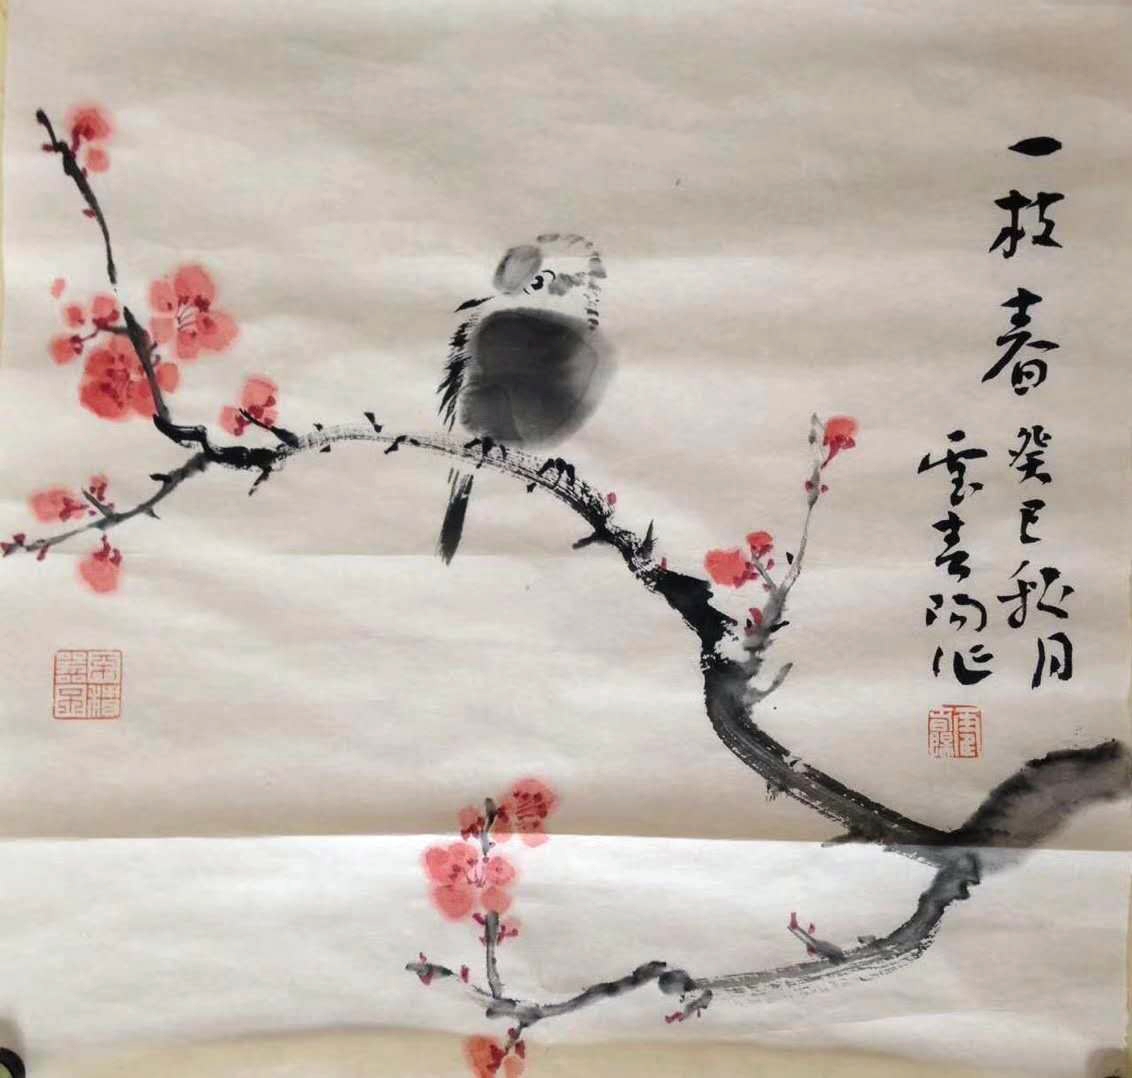 一枝春癸巳秋月
雲青陽作